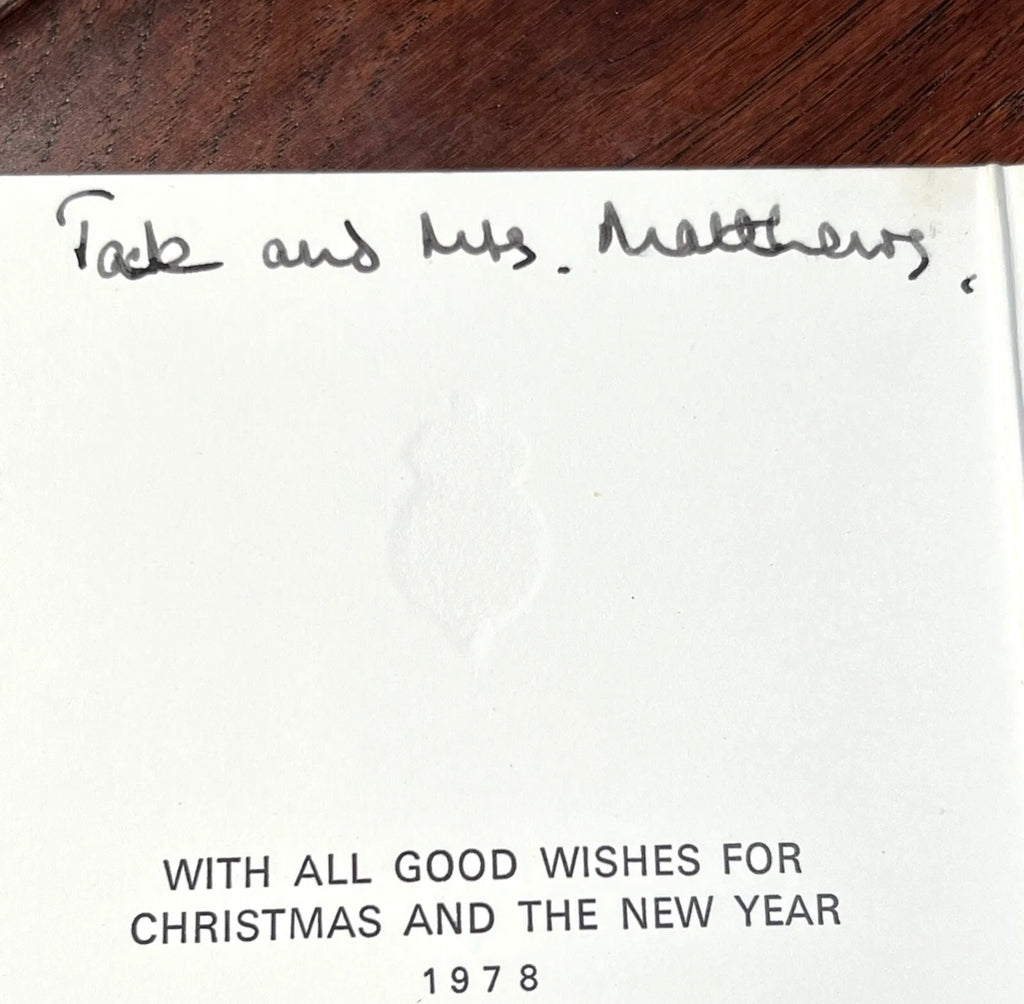 Jack and Mrs. Matthews.
WITH ALL GOOD WISHES FOR
CHRISTMAS AND THE NEW YEAR
1978